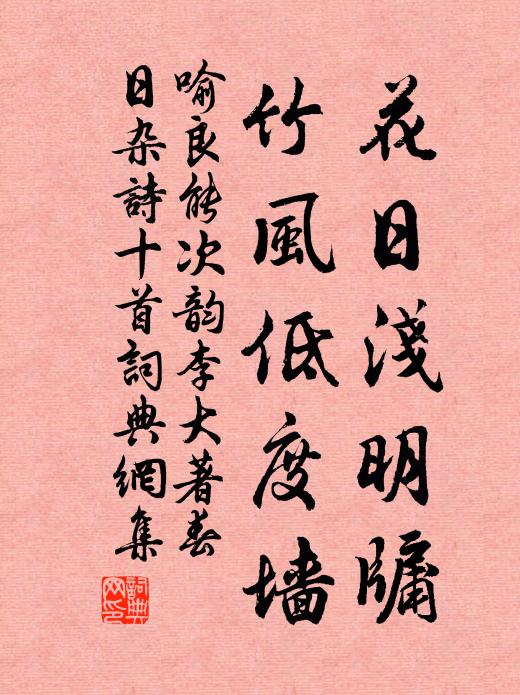 花日淺明牗
竹風低度墙
喻良能次韵李大著春
日杂詩十首詞典網集
詞典网印